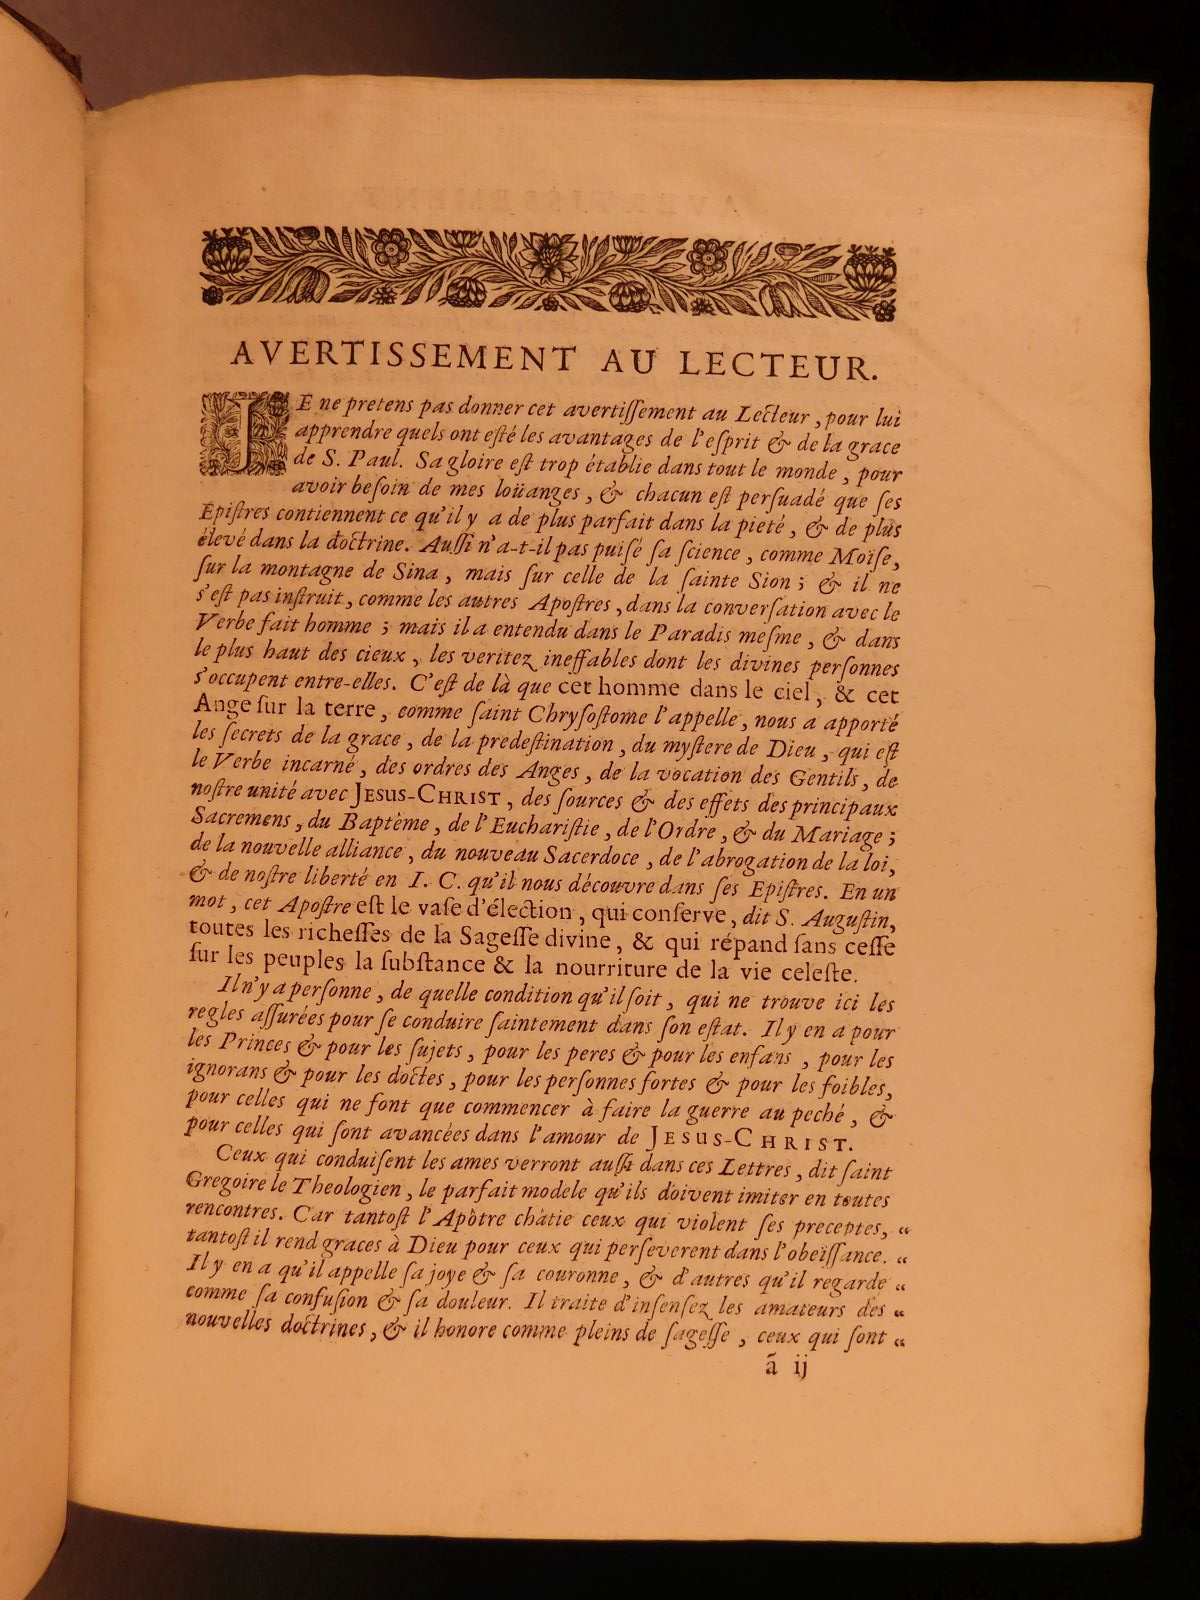 AVERTISSEMENT AU LECTEUR.
JE ne pretens pas donner cet avertiſſement au Lecteur, pour lui
apprendre quels ont eſté les avantages de l'eſprit & de la grace
de S. Paul. Sa gloire eſt trop établie dans tout le monde, pour
avoir beſoin de mes loüanges, & chacun eſt perſuadé que ſes
Epiſtres contiennent ce qu'il y a de plus parfait dans la pieté, & de plus
élevé dans la doctrine. Auſſi n'a-t-il pas puiſé ſa ſcience, comme Moïſe,
ſur la montagne de Sina, mais ſur celle de la ſainte Sion; & il ne
s'eſt pas inſtruit, comme les autres Apoſtres, dans la converſation avec le
Verbe fait homme; mais il a entendu dans le Paradis meſme, & dans
le plus haut des cieux, les veritez ineffables dont les divines perſonnes
s'occupent entre-elles. C'eſt de là que cet homme dans le ciel, & cet
Ange ſur la terre, comme ſaint Chryſoſtome l'appelle, nous a apporté
les ſecrets de la grace, de la predeſtination, du myſtere de Dieu, qui eſt
le Verbe incarné, des ordres des Anges, de la vocation des Gentils, de
noſtre unité avec JESUS-CHRIST, des ſources & des effets des principaux
Sacremens, du Baptême, de l'Euchariſtie, de l'Ordre, & du Mariage;
de la nouvelle alliance, du nouveau Sacerdoce, de l'abrogation de la loi,
& de noſtre liberté en I. C. qu'il nous découvre dans ſes Epiſtres. En un
mot, cet Apoſtre eſt le vaſe d'élection, qui conſerve, dit S. Auguſtin,
toutes les richeſſes de la Sageſſe divine, & qui répand ſans ceſſe
ſur les peuples la ſubſtance & la nourriture de la vie celeſte.
Il n'y a perſonne, de quelle condition qu'il ſoit, qui ne trouve ici les
regles aſſurées pour ſe conduire ſaintement dans ſon eſtat. Il y en a pour
les Princes & pour les ſujets, pour les peres & pour les enfans, pour les
ignorans & pour les doctes, pour les perſonnes fortes & pour les foibles,
pour celles qui ne font que commencer à faire la guerre au peché, &
pour celles qui ſont avancées dans l'amour de JESUS-CHRIST.
Ceux qui conduiſent les ames verront auſſi dans ces Lettres, dit ſaint
Gregoire le Theologien, le parfait modele qu'ils doivent imiter en toutes
rencontres. Car tantoſt l'Apôtre châtie ceux qui violent ſes preceptes, “
tantoſt il rend graces à Dieu pour ceux qui perſeverent dans l'obeïſſance. “
Il y en a qu'il appelle ſa joye & ſa couronne, & d'autres qu'il regarde “
comme ſa confuſion & ſa douleur. Il traite d'inſenſez les amateurs des “
nouvelles doctrines, & il honore comme pleins de ſageſſe, ceux qui ſont “
ã ij